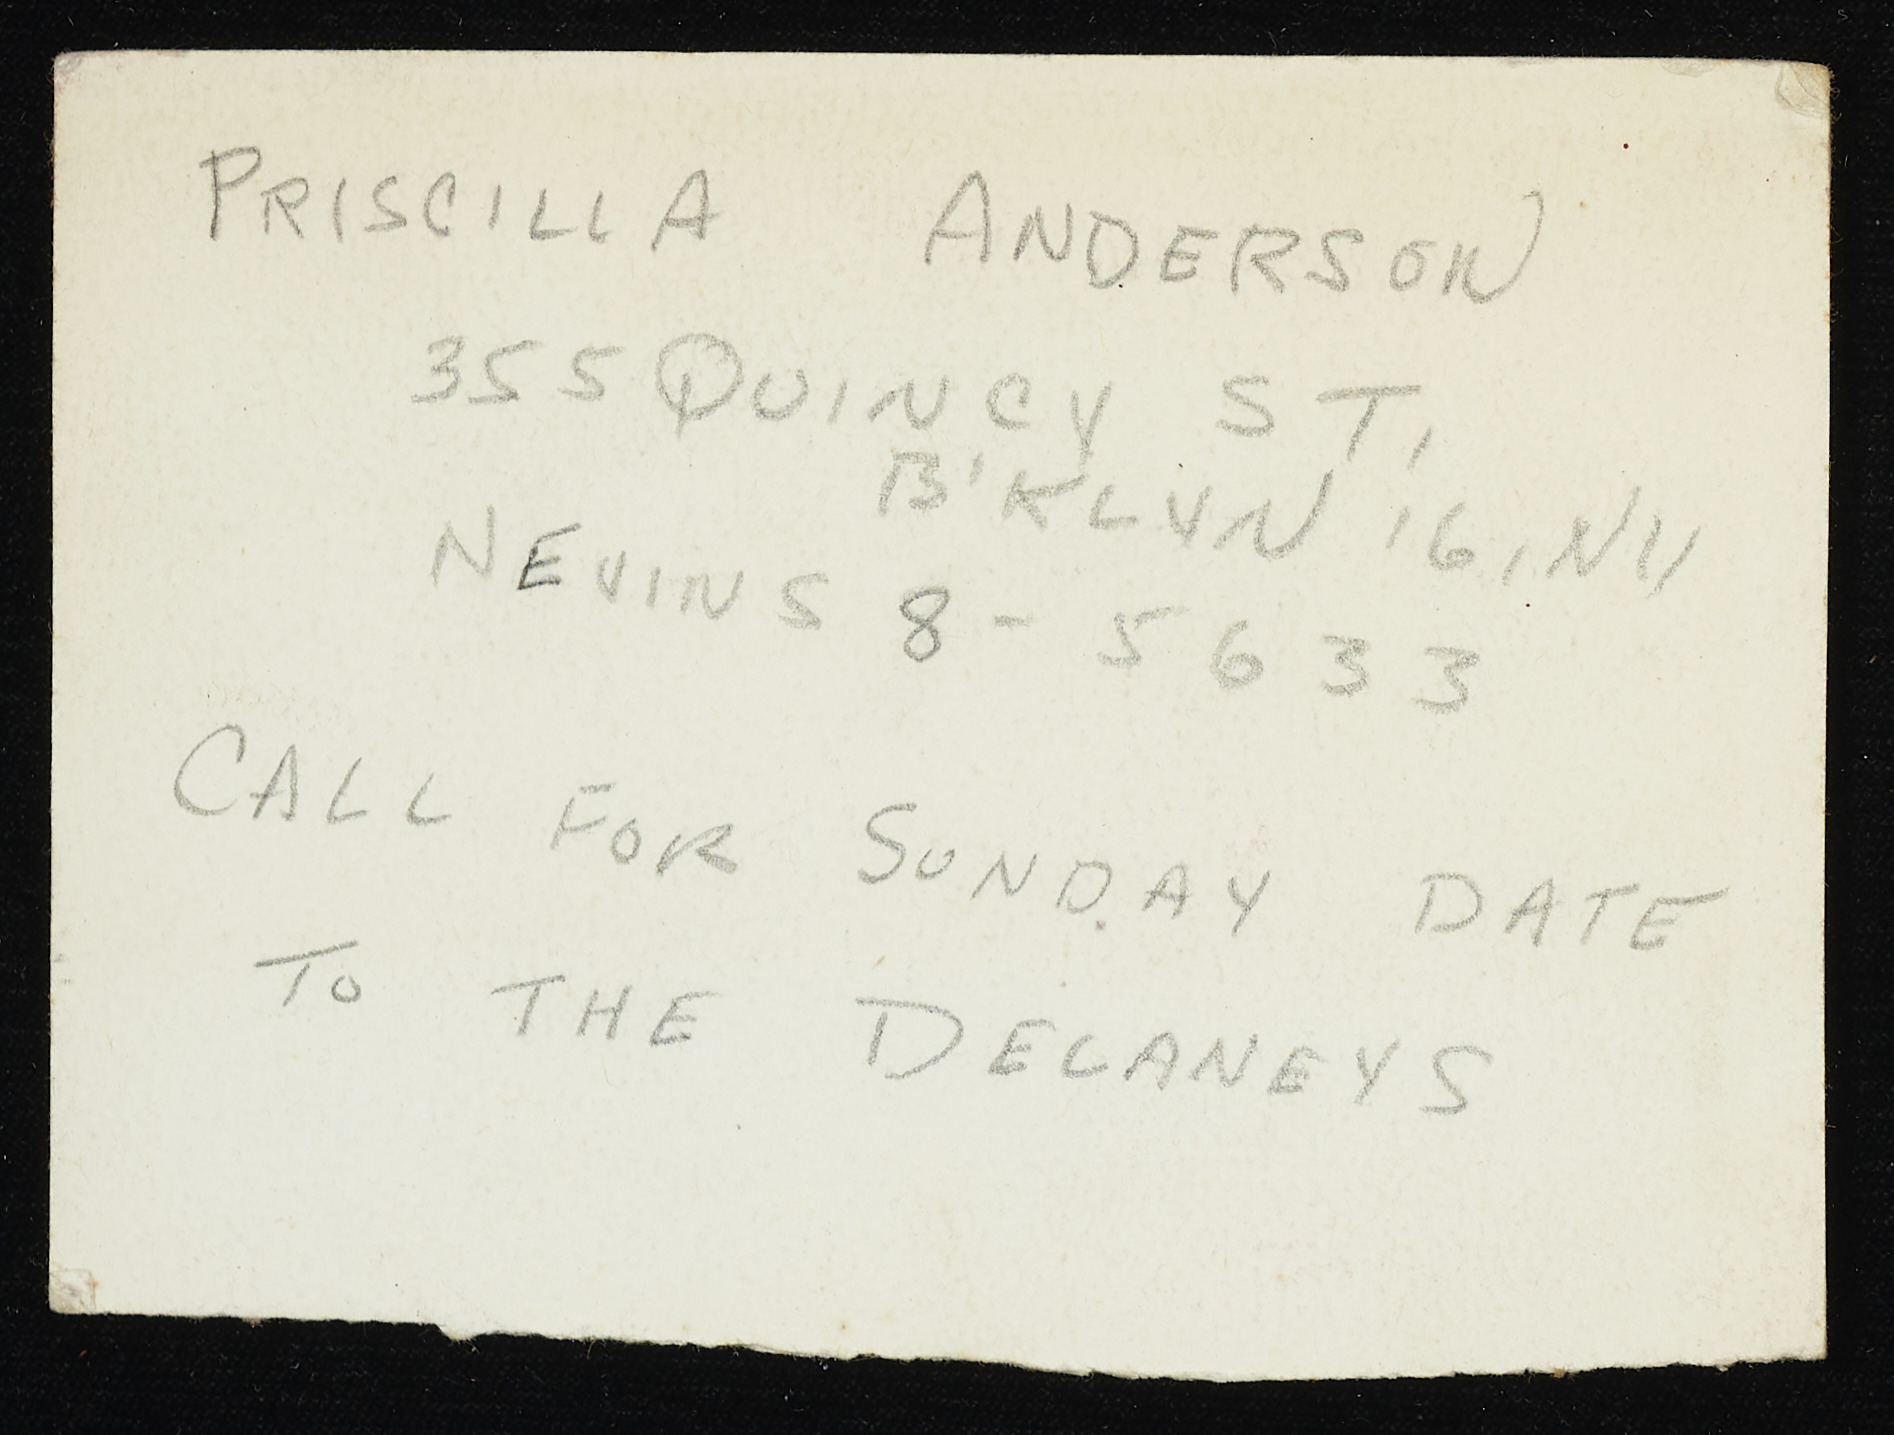 PRISCILLA ANDERSON
355 QUINCY ST,
B'KLYN 16, NY
NEVINS 8-5633
CALL FOR SUNDAY DATE
TO THE DELANEYS